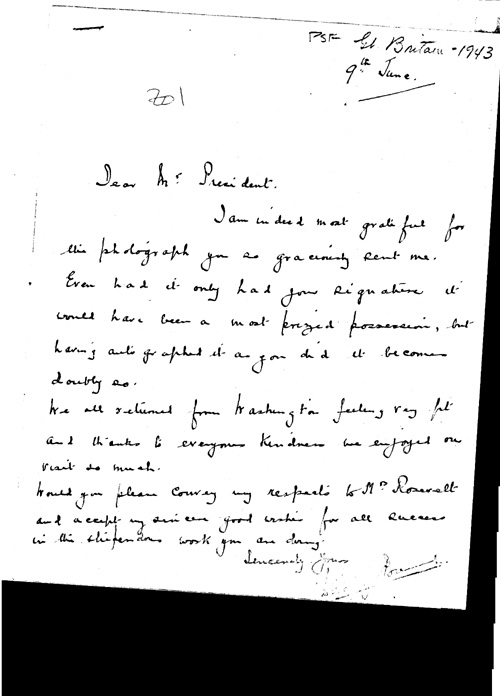 PSF Gt Britain - 1943
9th June.
201
Dear Mr President.
I am indeed most grateful for
the photograph you so graciously sent me.
Even had it only had your signature it
would have been a most prized possession, but
having autographed it as you did it becomes
doubly so.
We all returned from Washington feeling very fit
and thanks to everyones kindness we enjoyed our
visit so much.
Would you please convey my respects to Mrs Roosevelt
and accept my sincere good wishes for all success
in the stupendous work you are doing.
Sincerely yours